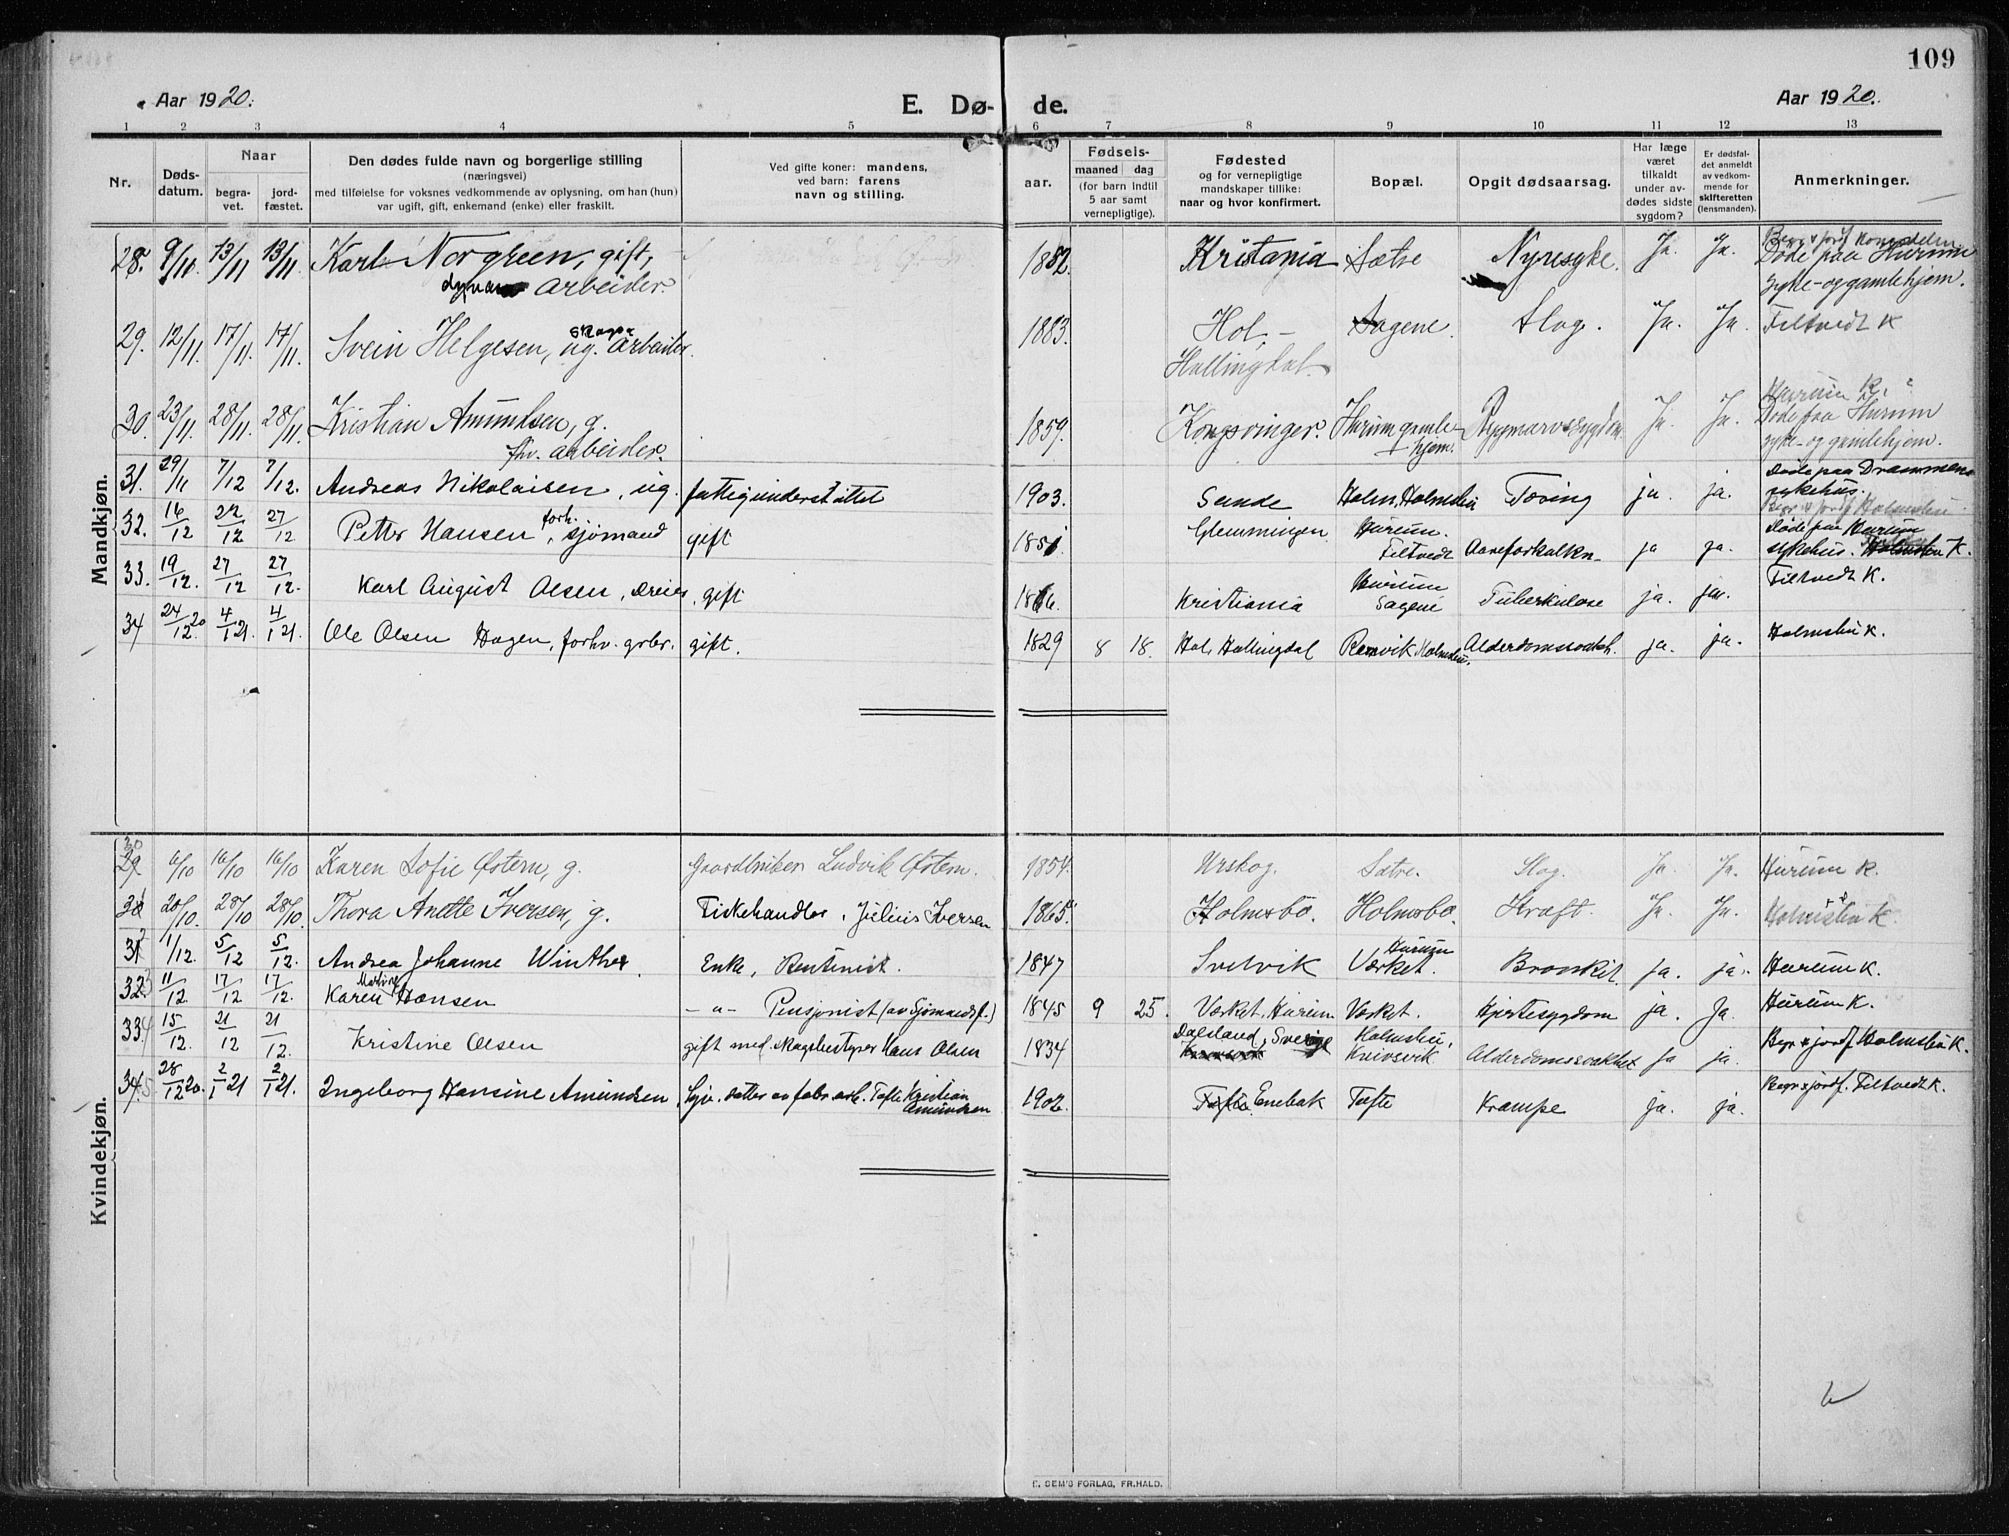 109
Aar 1920.
E. Dø-
de.
Aar 1920.
1 2 3 4 5 6 7 8 9 10 11 12 13
Nr.
Døds-
datum.
Naar
begra-
vet.
jord-
fæstet.
Den dødes fulde navn og borgerlige stilling
(næringsvei)
med tilføielse for voksnes vedkommende av oplysning, om han (hun)
var ugift, gift, enkemand (enke) eller fraskilt.
Ved gifte koner: mandens,
ved barn: farens
navn og stilling.
aar.
Fødsels-
maaned dag
(for barn indtil
5 aar samt
vernepligtige).
Fødested
og for vernepligtige
mandskaper tillike:
naar og hvor konfirmert.
Bopæl.
Opgit dødsaarsag.
Har læge
været
tilkaldt
under av-
dødes sidste
sygdom?
Er dødsfal-
det anmeldt
av vedkom-
mende for
skifteretten
(lensmanden).
Anmerkninger.
Mandkjøn.
28. 9/10. 13/11 13/11 Karl Norgreen, gift, 1882. Kristania Sætre Nyresyke. Ja. Ja. Døde paa Hurum
arbeider. syke- og gamlehjem.
29. 12/11 17/11. 17/11. Svein Helgesen, ug. arbeider. 1883. Hol,- Sagene. Slag. Ja. Ja. Filtvedt K
Hallingdal.
Hurum K.
30. 23/11. 28/11. 28/11. Kristian Amundsen, g. 1859. Kongsvinger. Hurum gamle- Rygmarvssygdom Ja. Ja. Døde paa Hurum
fhv. arbeider. hjem. syke- og gamlehjem.
31. 29/11 7/12 7/12. Andreas Nikolaisen, ug. fattigunderstøttet 1903. Sande Holm, Holmsbu Tæring ja. ja. Døde paa Drammens
sykehus.
Begr. & jordf. Holmsbu
32. 16/12 27/12 27/12 Petter Hansen, forh. sjømand gift 1851. Glemmingen Hurum.
Filtvedt Aareforkalkn- ja ja. Døde paa Hurum
sykehus. K.
33. 19/12. 27/12 27/12. Karl August Olsen, Dreier, gift Kristiania Hurum
Sagene Tuberkulose ja. ja. Filtvedt K.
34 24/12 20. 4/1 21. 4/1 21. Ole Olsen Hagen, forhv. grbr. gift. 1829 8 18. Hol, Hallingdal Rernvik Holmsbu. Alderdomssvakh. ja. ja. Holmsbu K.
Kvindekjøn.
30
29 6/10 16/10 16/10 Karen Sofie Østern, g. Gaardbruker Ludvik Østern. 1854. Urskog. Sætre. Slag. Ja. Ja. Hurum K.
31 20/10. 28/10 28/10. Thora Anette Iversen, g. Fiskehandler Julius Iversen 1865. Holmsbo. Holmsbo. Kræft. Ja. Ja. Holmsbu K.
31 1/12. 5/12 5/12. Andrea Johanne Winther Enke, Rentenist. 1847 Svelvik Hurum
Værket. Bronkit. ja. ja. Hurum K.
32 11/12 17/12 17/12. Karen Hansen - " - Pensjonist (av Sjømandsf.) 1845 9 25. Værket, Hurum Værket. Hjertesygdom ja. Ja. Hurum K.
33 15/12. 21/12 21/12. Kristine Olsen gift med Hans Olsen 1834 Dalsland, Sverige Holmsbu,
Knivsvik Alderdomssvakhet ja ja. Begr & jordf. Holmsbu K.
34 28/12 20. 2/1 21 2/1 21. Ingeborg Hansine Amundsen, datter av fabr. arb. Tofte Kristian
Amundsen 1902. Tofte. Enebak Tofte Krampe ja. ja. Begr & jordf. Filtvedt K.
E. SEM'S FORLAG, FR.HALD.